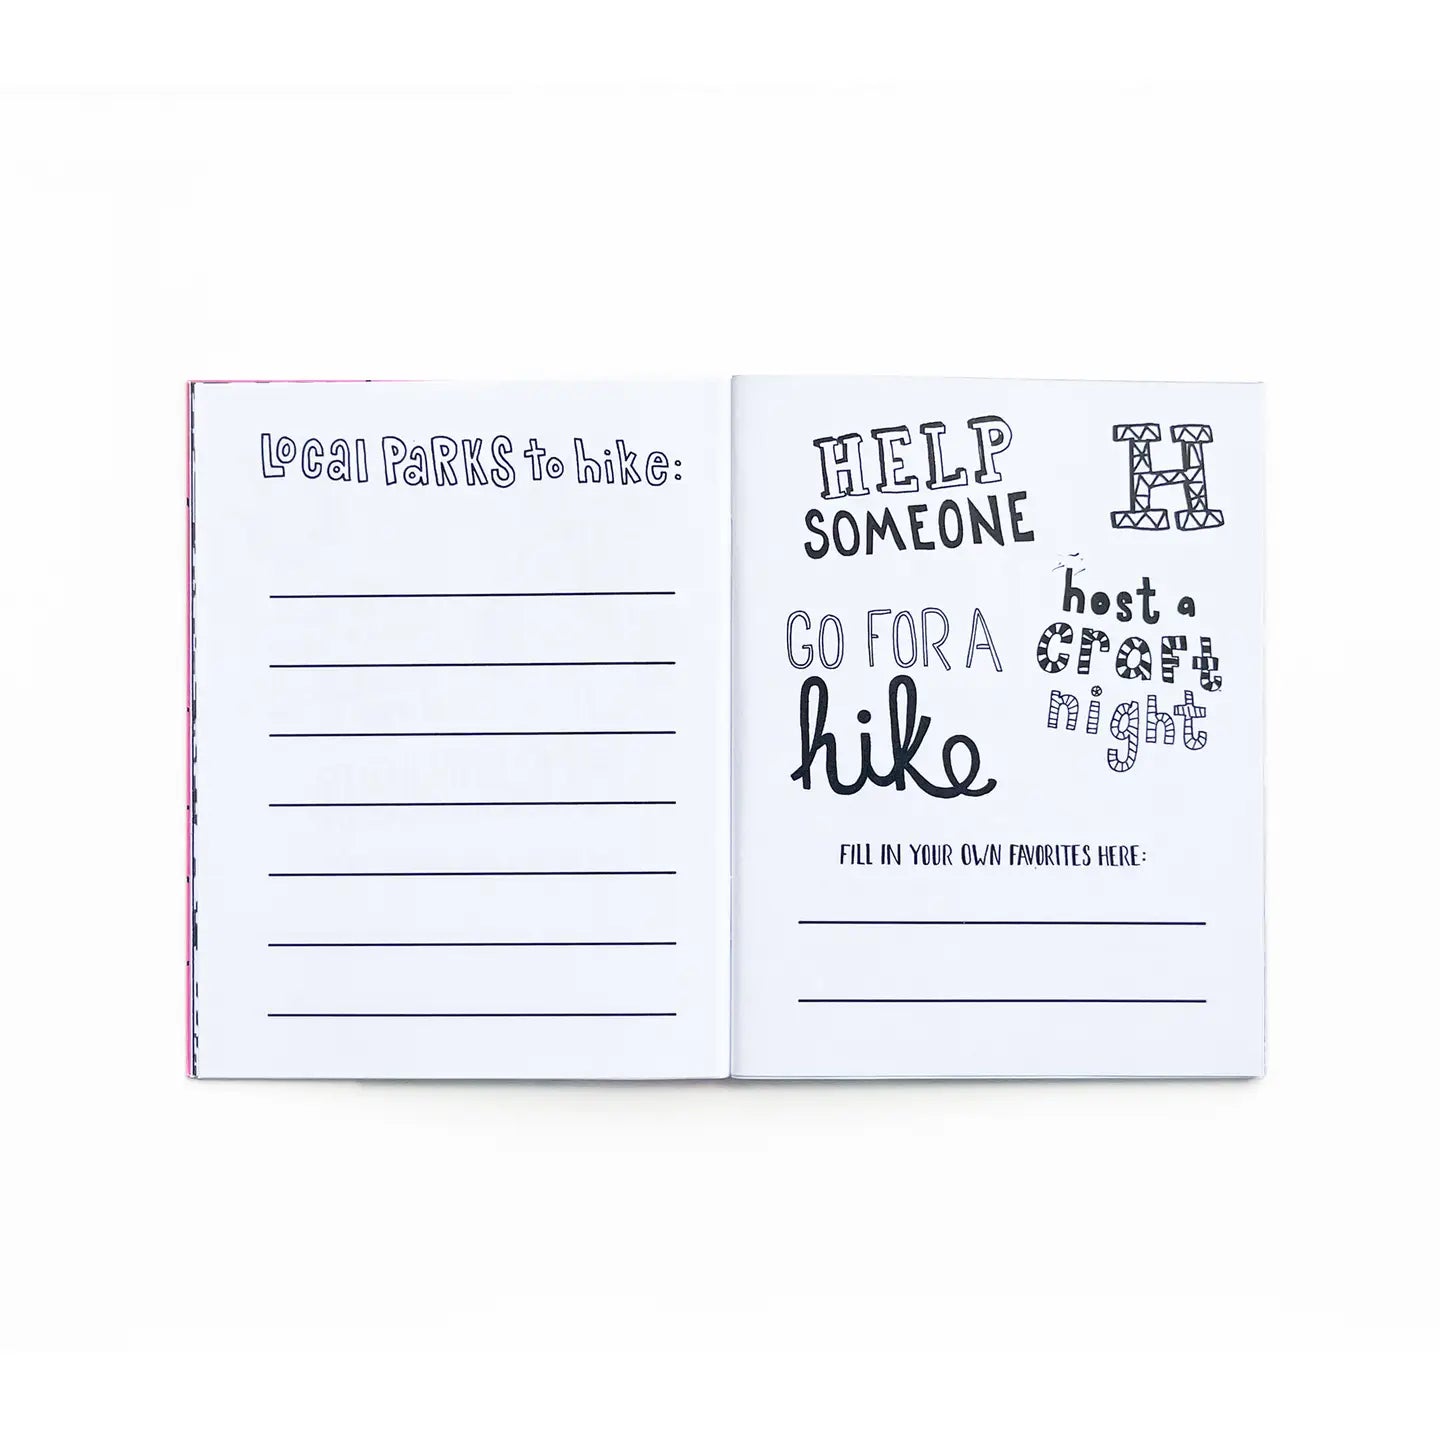 Local PaRKS to hike:
HELP
SOMEONE
H
GO FOR A
hike
host a
craft
night
FILL IN YOUR OWN FAVORITES HERE: